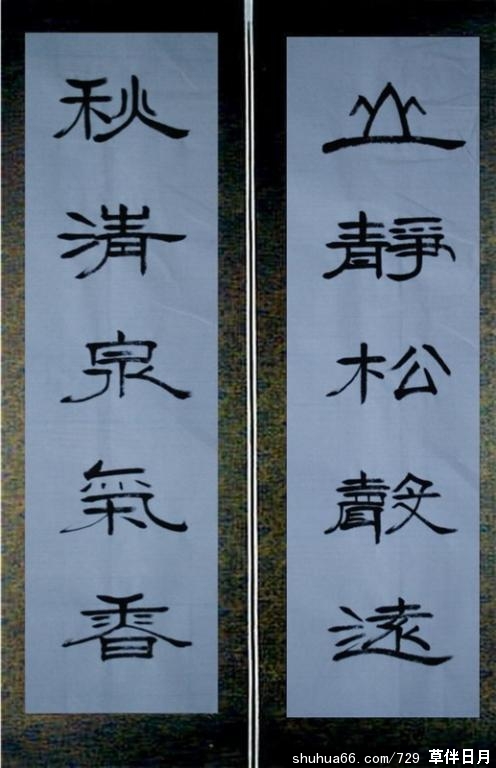 山靜松聲遠
秋清泉氣香
shuhua66.com/729 草伴日月